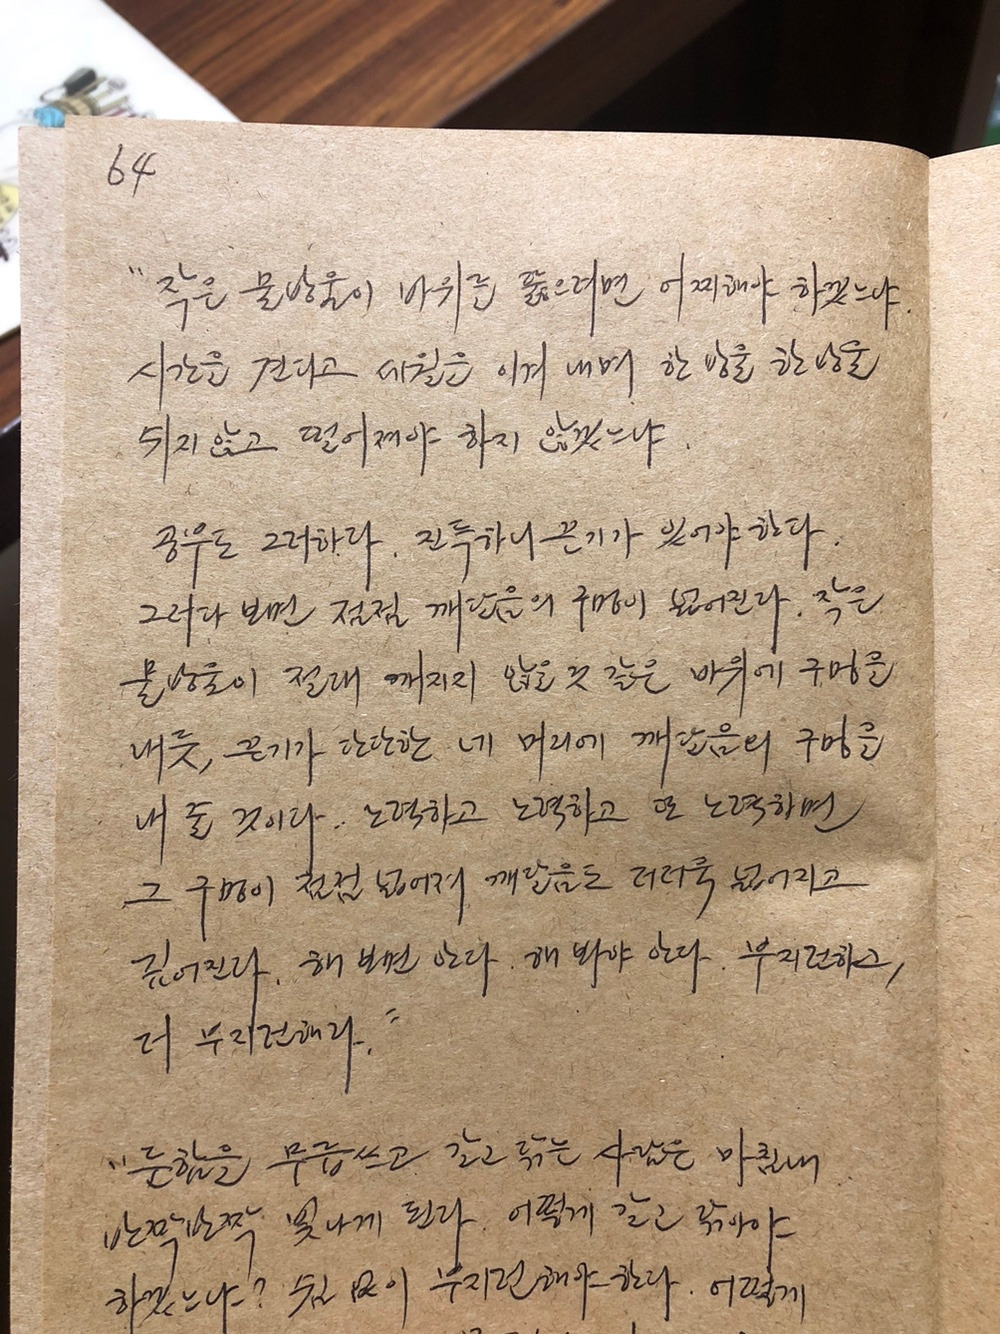 64
"작은 물방울이 바위를 뚫으려면 어찌해야 하겠느냐.
시간을 견디고 세월을 이겨 내며 한 방울 한 방울
쉬지 않고 떨어져야 하지 않겠느냐.
공부도 그러하다. 진득하니 끈기가 있어야 한다.
그러다 보면 점점 깨달음의 구멍이 넓어진다. 작은
물방울이 절대 깨지지 않을 것 같은 바위에 구멍을
내듯, 끈기가 단단한 네 머리에 깨달음의 구멍을
내 줄 것이다. 노력하고 노력하고 또 노력하면
그 구멍이 점점 넓어져 깨달음도 더러욱 넓어지고
깊어진다. 해 보면 안다. 해 봐야 안다. 부지런하고,
더 부지런해라."
"둔함을 무릅쓰고 갈고 닦는 사람은 마침내
반짝반짝 빛나게 된다. 어떻게 갈고 닦아야
하겠느냐? 쉼 없이 부지런해야 한다. 어떻게